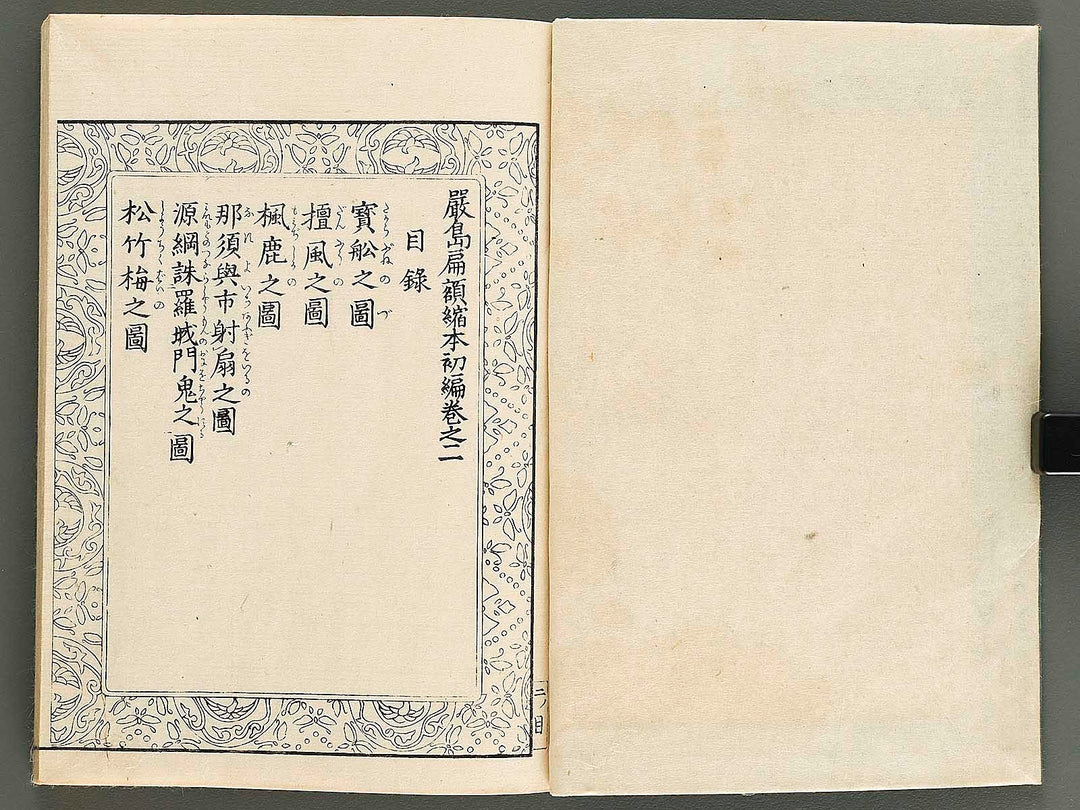 嚴島扁額縮本初編巻之二
目錄
寳舩之圖
擅風之圖
楓鹿之圖
那須與市射扇之圖
源綱誅羅城門鬼之圖
松竹梅之圖
二ノ目一